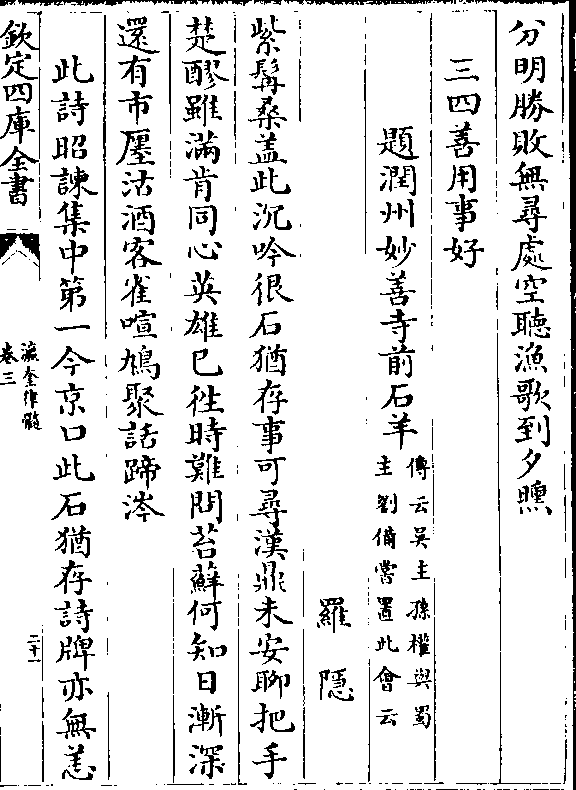 分明勝敗無尋處空聽漁歌到夕曛
三四善用事好
題潤州妙善寺前石羊
傳云吳主孫權與蜀
主劉備嘗置此會云
羅隱
紫髯桑盖此沉吟很石猶存事可尋漢鼎未安聊把手
楚醪雖滿肯同心英雄已徃時難問苔蘚何知日漸深
還有市㕓沽酒客雀喧鳩聚話蹄涔
此詩昭諫集中第一今京口此石猶存詩牌亦無恙
欽定四庫全書
瀛奎律髓
卷三
二十一